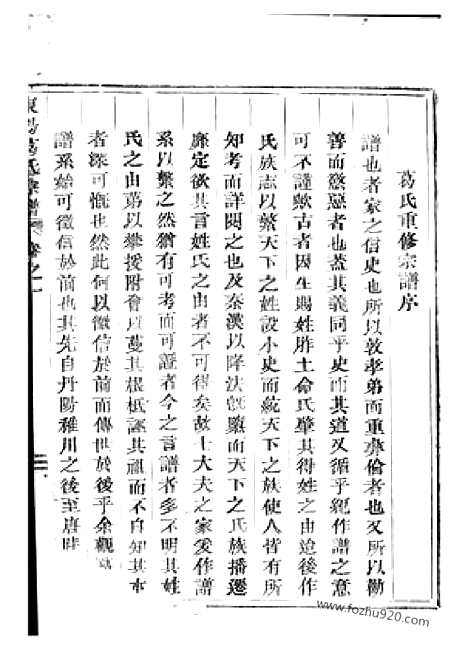 葛氏重修宗譜序
譜也者家之信史也所以敦孝弟而重彝倫者也又所以勸
善而懲惡者也蓋其義同乎史而其道又循乎經作譜之意
可不謹歟古者因生賜姓胙土命氏肇其得姓之由迨後作
氏族志以繫天下之姓設小史而統天下之族使人皆有所
知考而詳閱之也及秦漢以降法既廢而天下之氏族播遷
靡定欲其言姓氏之由者不可得矣故士大夫之家爰作譜
系以繫之然猶有可考而可證者今之言譜者多不明其姓
氏之由第以攀援附會以蔓其根柢誣其祖而不自知其本
者深可慨也然此何以徵信於前而傳世於後乎余觀
譜系始可徵信於前也其先自丹陽稚川之後至唐時
東陽葛氏宗譜 卷之一
www.fozhu920.com